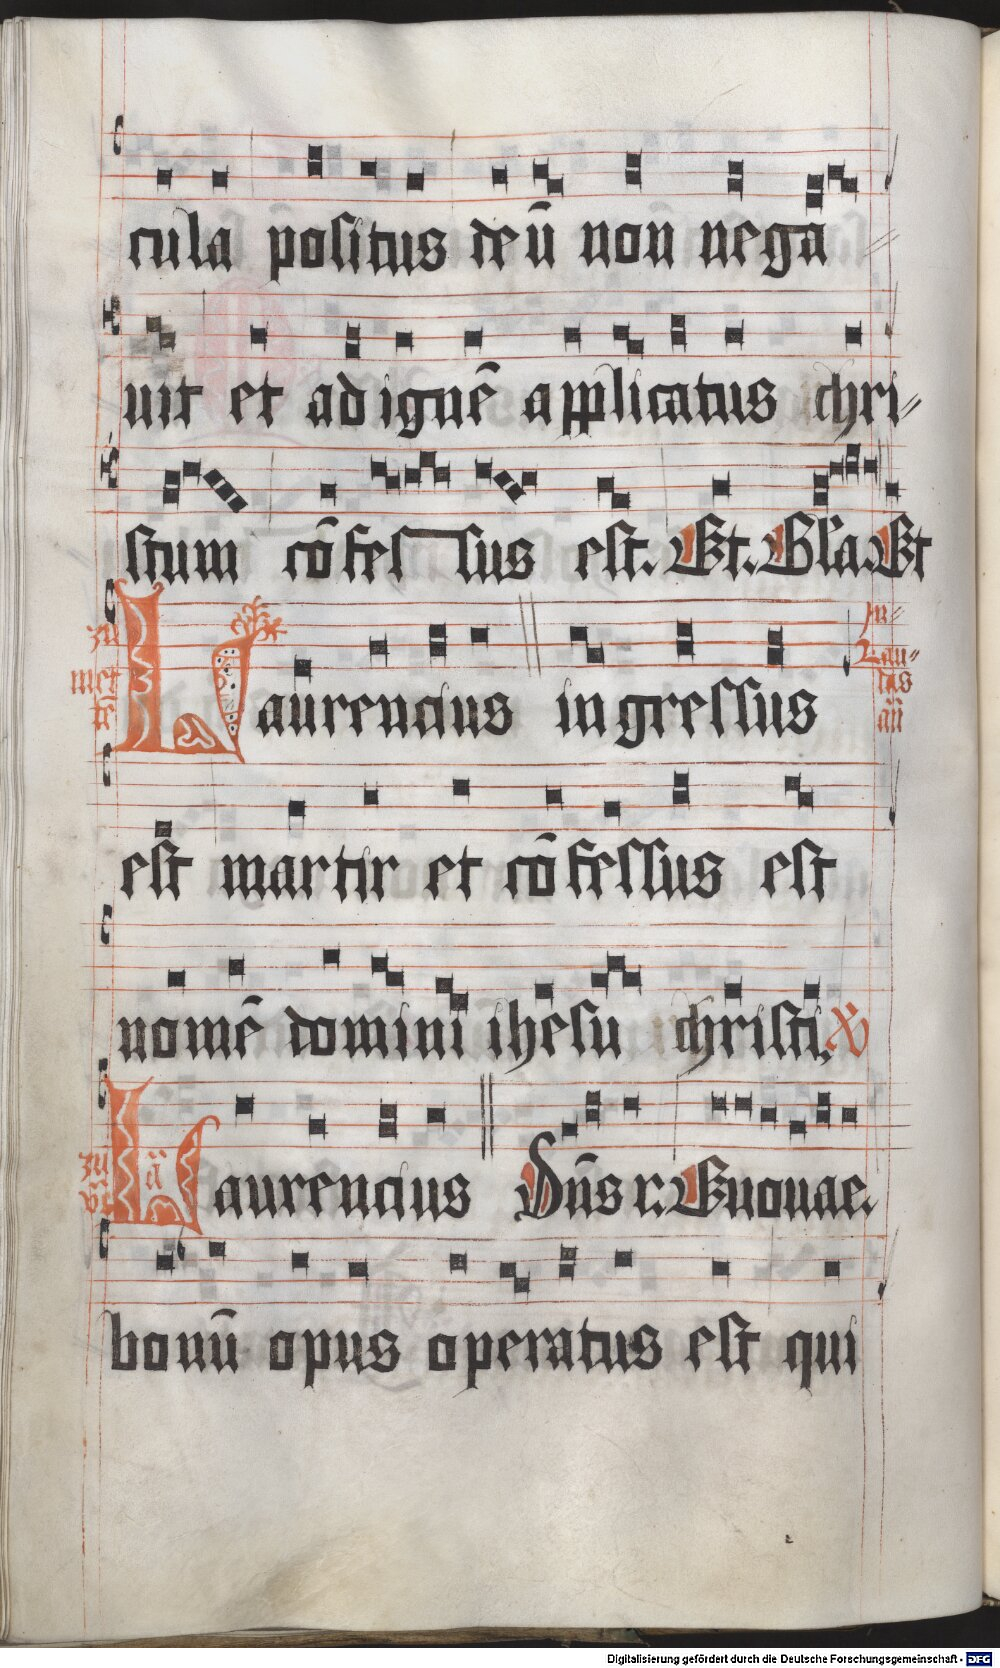 cula p̄ositus deū non nega
uit et ad ignē applicatus chri⸗
stum cōfessus est. Et. Gl'a. Et
zu met tē Laurencius ingressus In⸗ Lau⸗ dis añ
est martir et cōfessus est
nomē domini ihesu christi,
zu Laurencius Dn̄s r. Euouae.
bonū opus operatus est qui
Digitalisierung gefördert durch die Deutsche Forschungsgemeinschaft - DFG